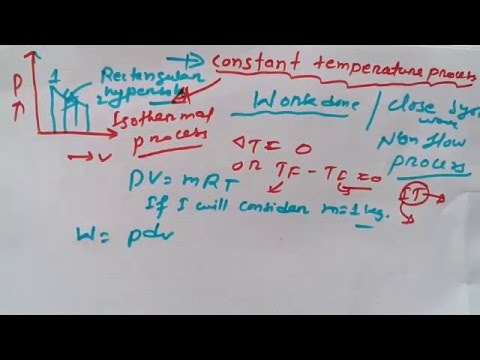 → constant temperature process
P
↑
1
2
→ v
Rectangular
hyperbola
Isothermal
process
Work done / close sys
work
Non flow
process
ΔT = 0
or TF - TI = 0
PV = mRT
If I will consider m=1 kg.
W = pdv